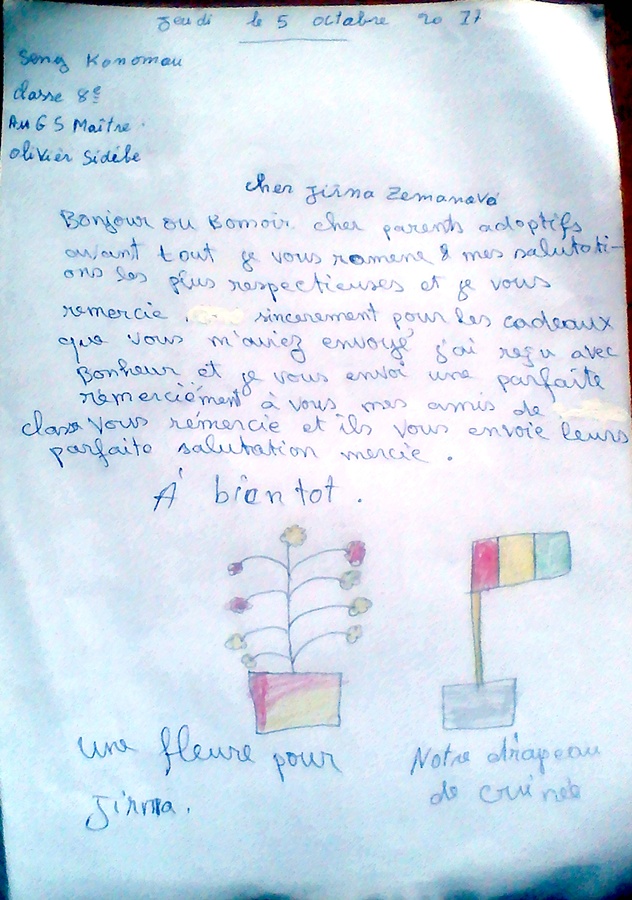 Jeudi le 5 octobre 2017
Seny Konomou
classe 8e
Au G S Maître
Olivier Sidébe
cher Jirina Zemanová
Bonjour ou Bomoir cher parents adoptifs
avant tout je vous ramene 8 mes salutati-
ons les plus respectieuses et je vous
remercie sincerement pour les cadeaux
que vous m'aviez envoyé j'ai reçu avec
Bonheur et je vous envoi une parfaite
rémerciément à vous mes amis de
classe vous rémercie et ils vous envoie leurs
parfaite salutation mercie.
A bientot.
une fleure pour
Jirina.
Notre drapeau
de